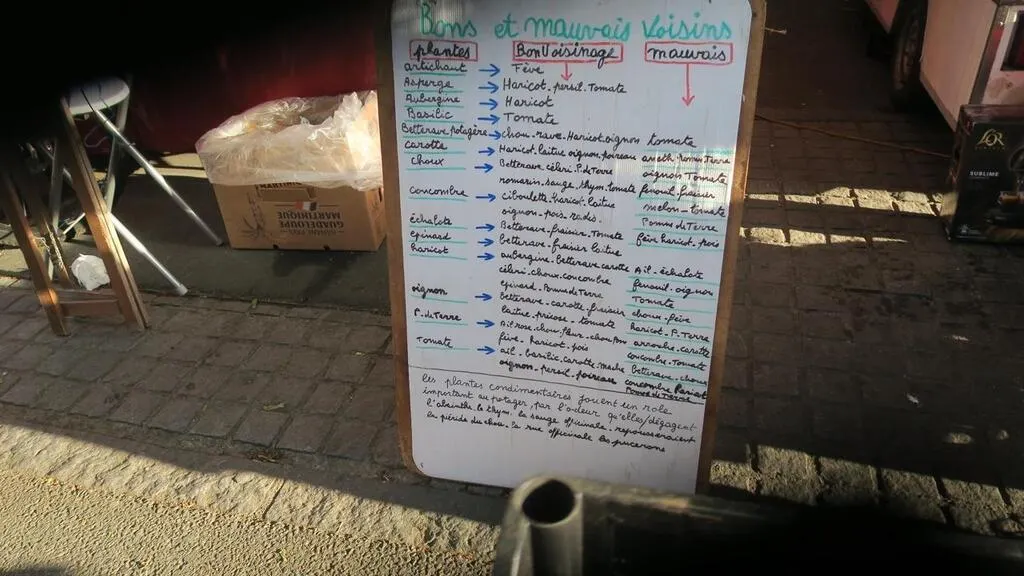 Bons et mauvais Voisins
plantes Bon Voisinage mauvais
artichaut → Fève
Asperge → Haricot. persil. Tomate
Aubergine → Haricot
Basilic → Tomate
Betterave potagère → chou. rave. Haricot. oignon tomate
Carotte → Haricot. laitue oignon. poireau aneth. Terre
choux → Betterave. céleri. P. de Terre oignon Tomate
romarin. sauge. thym. tomate fenouil. fraisier
concombre → ciboulette. haricot. laitue melon - tomate
oignon - pois. radis. Pomme de Terre
échalote → Betterave. fraisier. Tomate fève. haricot. pois
épinard → betterave. fraisier laitue
haricot → aubergine. betterave carotte Ail - échalote
céleri. choux. concombre fenouil. oignon
épinard - Pomme de Terre Tomate
oignon → betterave - carotte. fraisier choux - fève
laitue. - tomate haricot. P. Terre
P. de Terre → Ail rose. chou. fleur. arroche. carotte
fève. haricot. pois concombre. Tomate
Tomate → ail. basilic. carotte. mache betterave - choux
oignon - persil. poireau concombre
Pomme de Terre
les plantes condimentaires jouent un role
important au potager, par l'odeur qu'elles dégagent
l'absinthe le thym, la sauge officinale, repousseraient
la piéride du chou. la rue officinale les pucerons
MARTINIQUE
GUADELOUPE
L'OR
SUBLIME